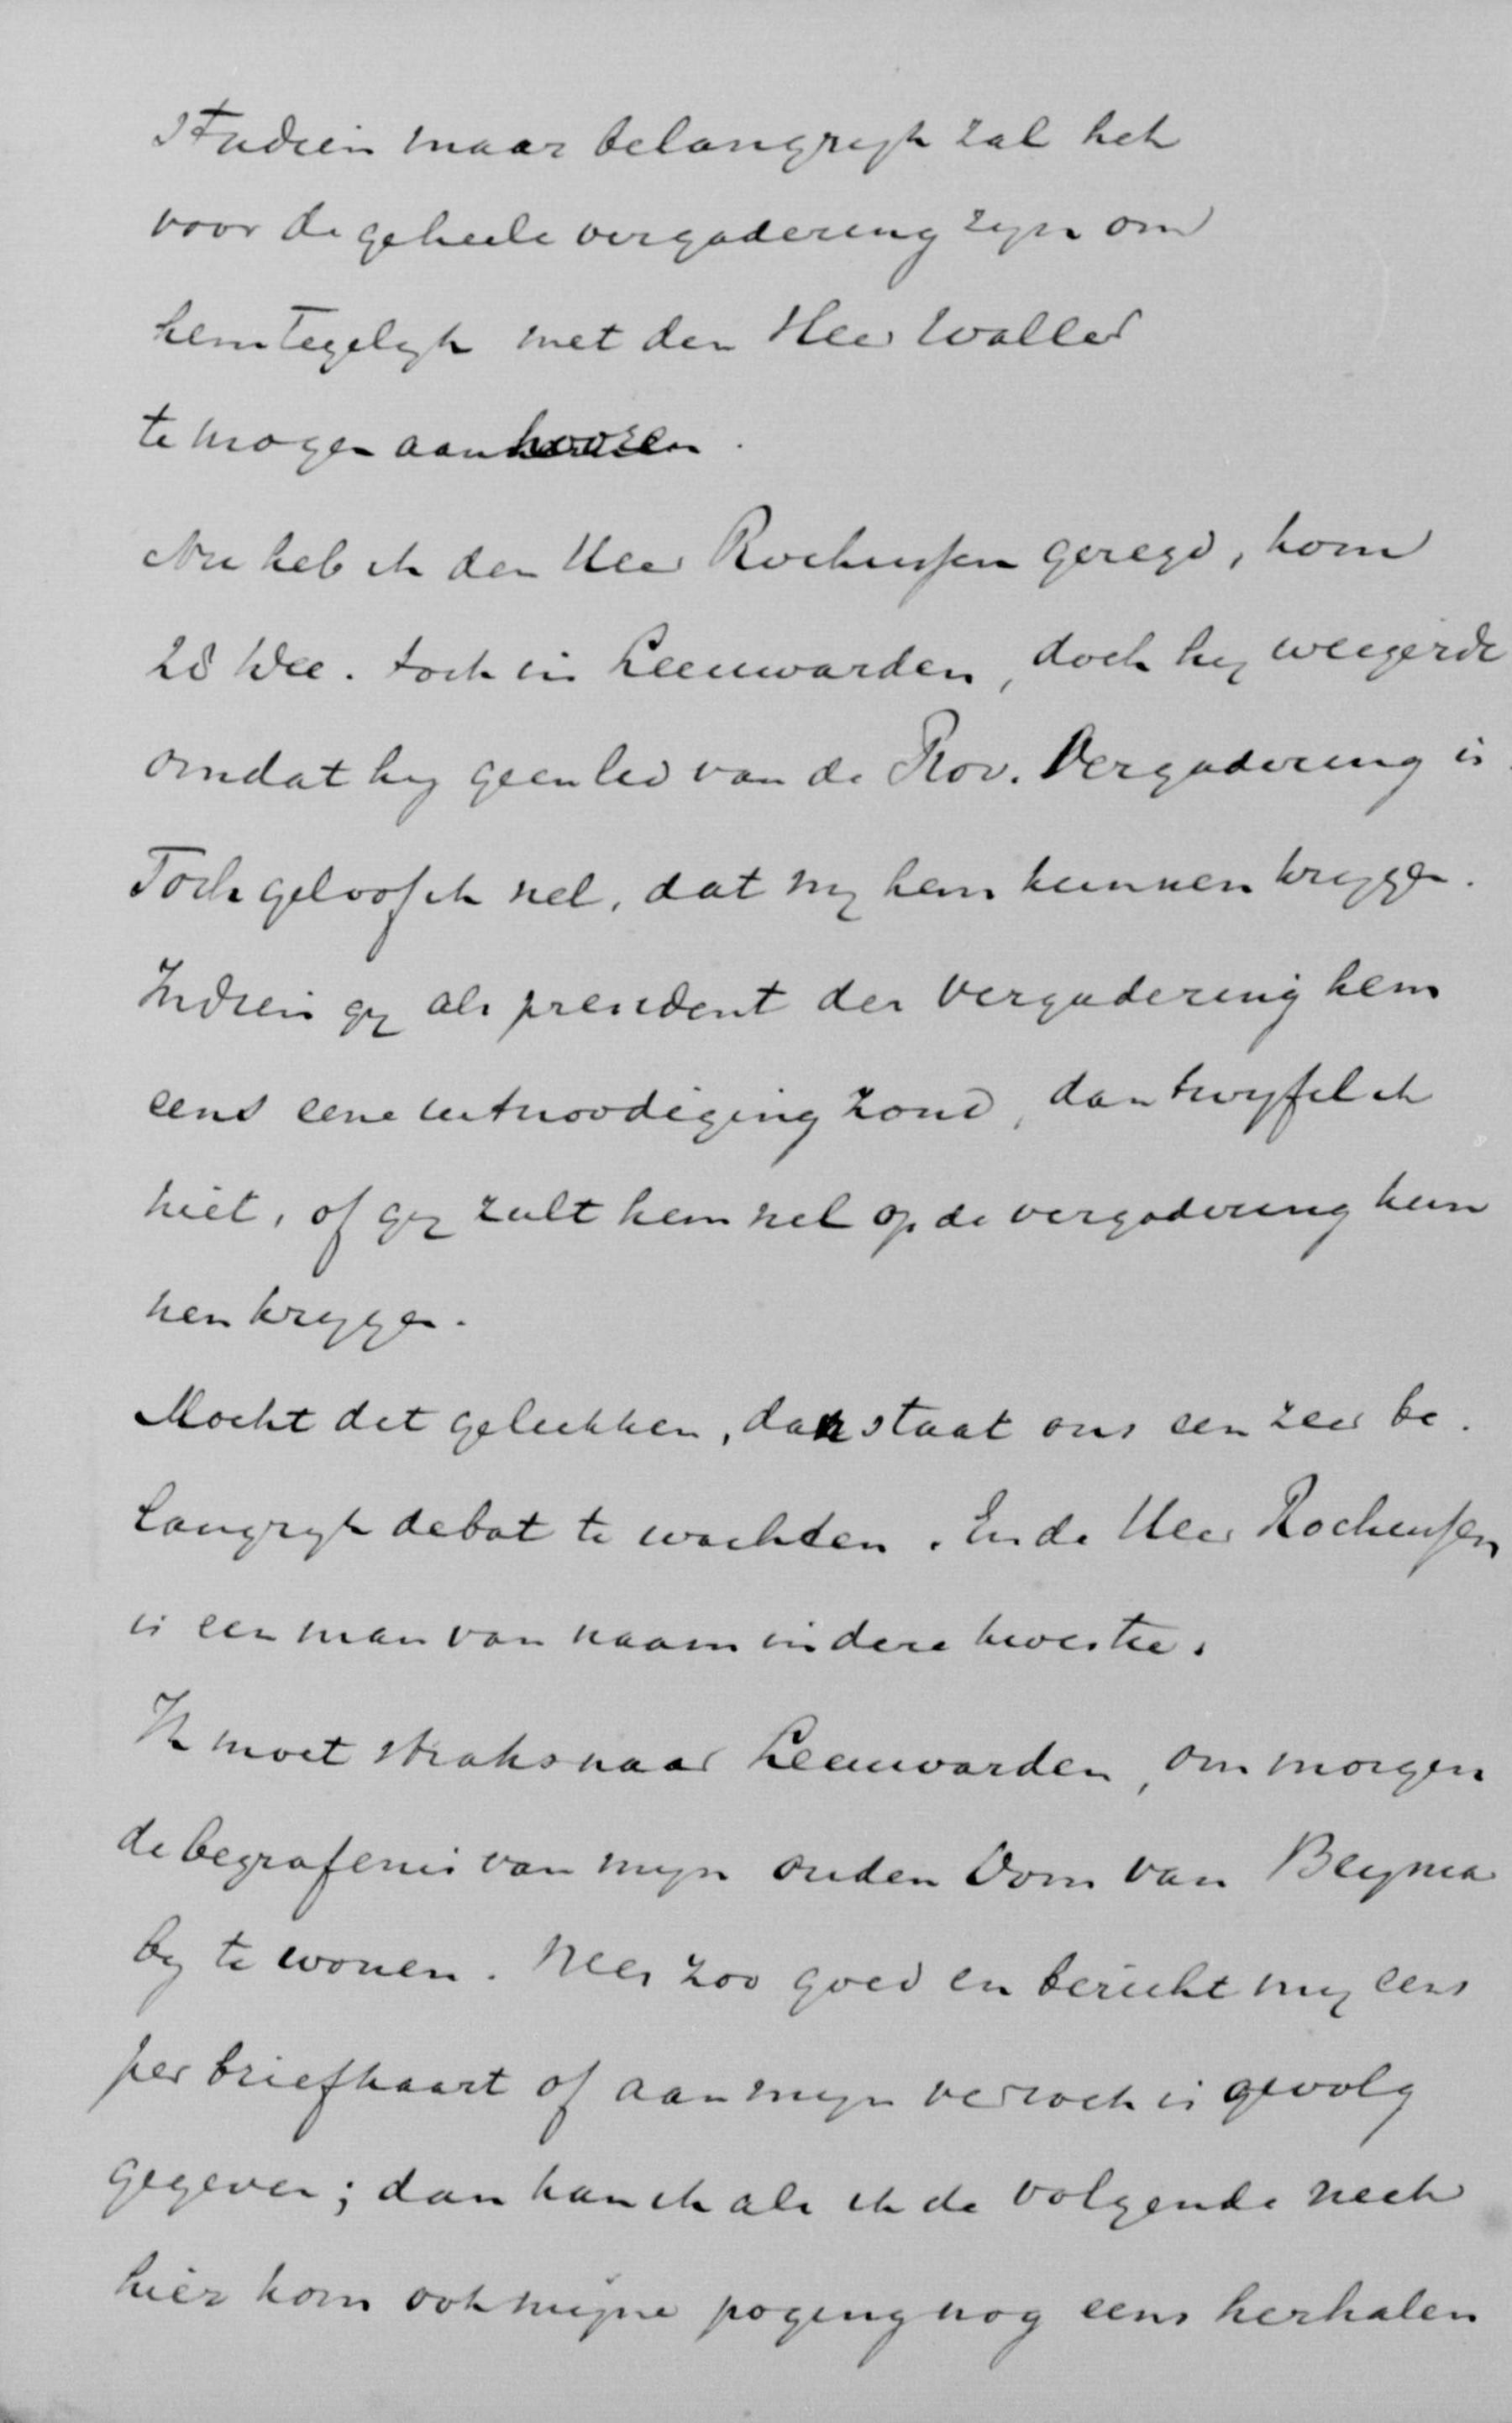 Studien maar belangryk zal het
voor de geheele vergadering zyn om
hem tegelyk met den Heer Waller
te mogen aanhooren.
Nu heb ik den Heer Rochussen gezegd, kom
28 Dec. toch in Leeuwarden, doch hy weigerde
omdat hy geen lid van de Prov. Vergadering is.
Toch geloof ik wel, dat wy hem kunnen krygen.
Indien gy als president der vergadering hem
eens eene uitnoodiging zond, dan twyfel ik
niet, of gy zult hem wel op de vergadering kun
nen krygen.
Mocht dit gelukken, dan staat ons een zeer be-
langryk debat te wachten. En de Heer Rochussen
is een man van naam in deze kwestie.
Ik moet straks naar Leeuwarden, om morgen
de begrafenis van myn ouden Oom van Beyma
by te wonen. Wees zoo goed en bericht my eens
per briefkaart of aan myn verzoek is gevolg
gegeven; dan kan ik als ik de volgende week
hier kom ook myne poging nog eens herhalen